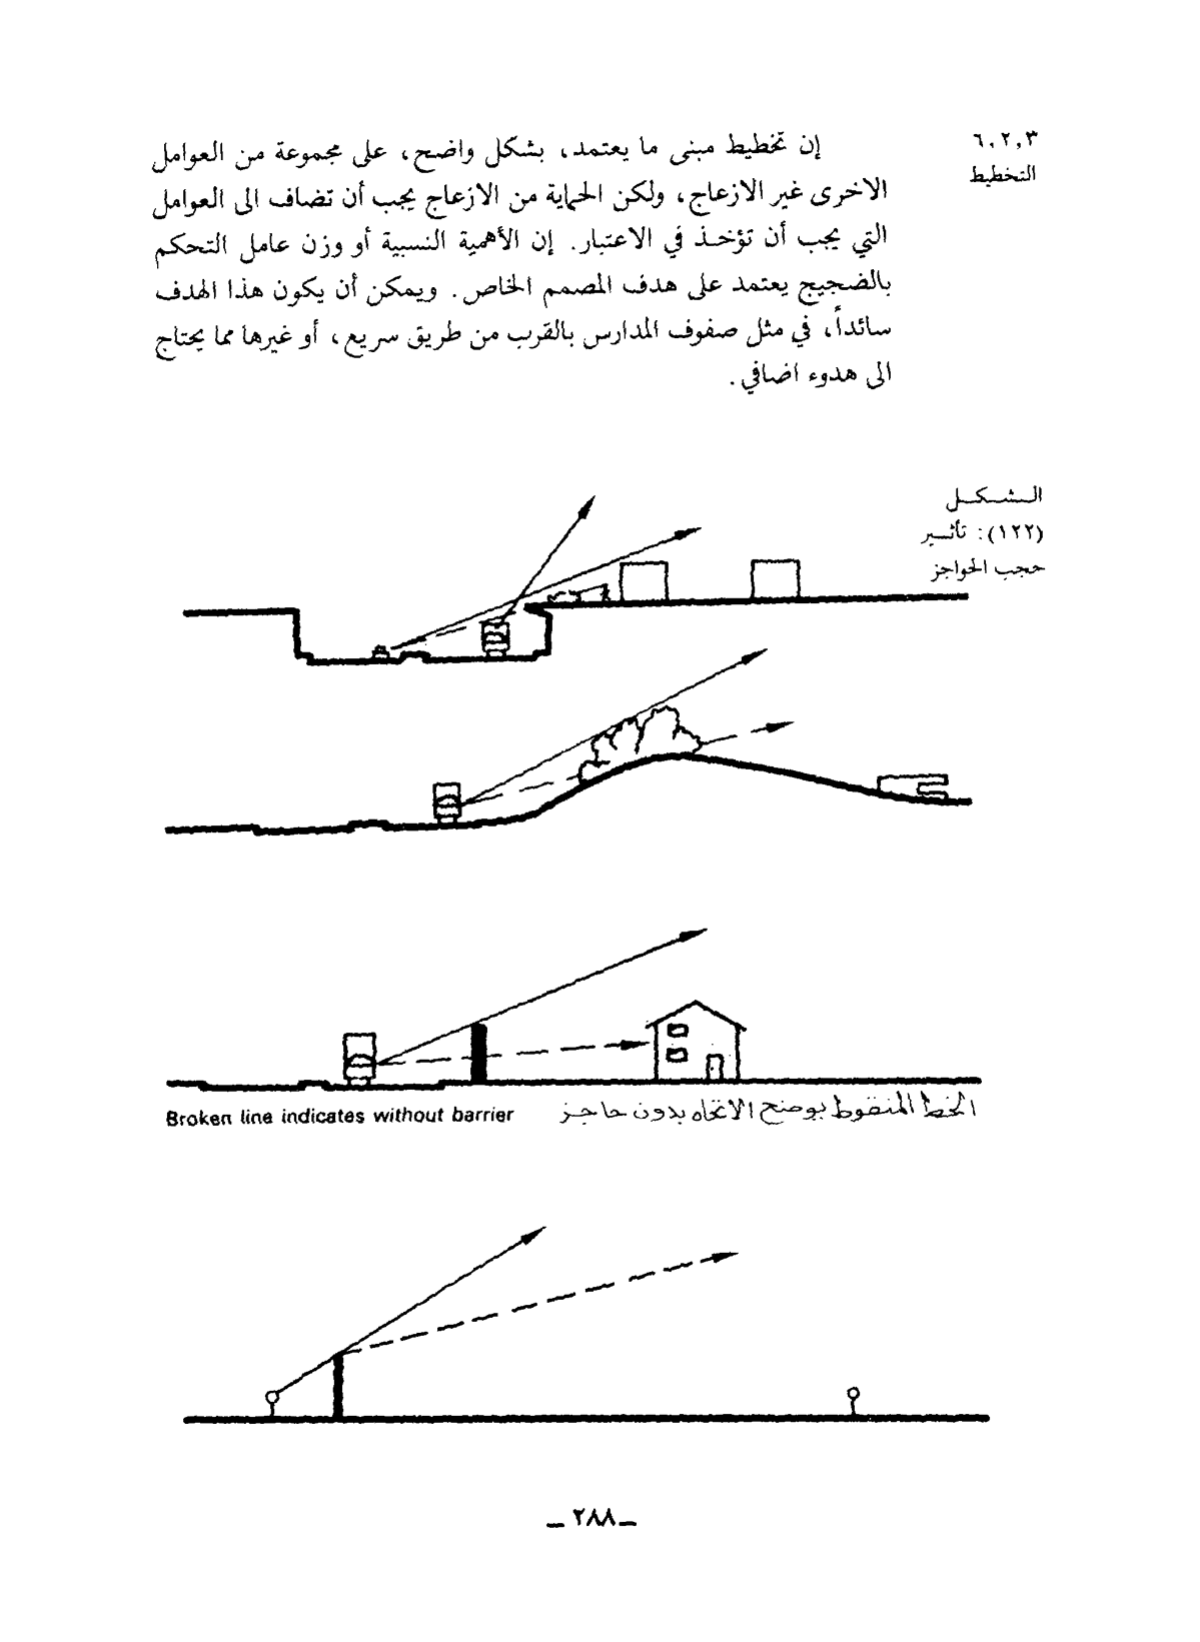 ٦,٢,٣
التخطيط
إن تخطيط مبنى ما يعتمد، بشكل واضح، على مجموعة من العوامل
الاخرى غير الازعاج، ولكن الحماية من الازعاج يجب أن تضاف الى العوامل
التي يجب أن تؤخذ في الاعتبار. إن الأهمية النسبية أو وزن عامل التحكم
بالضجيج يعتمد على هدف المصمم الخاص. ويمكن أن يكون هذا الهدف
سائداً، في مثل صفوف المدارس بالقرب من طريق سريع، أو غيرها مما يحتاج
الى هدوء اضافي.
الـشـكـل
(١٢٢): تأثـير
حجب الحواجز
Broken line indicates without barrier
الخط المنقوط يوضح الاتجاه بدون حاجز
ـ ٢٨٨ ـ